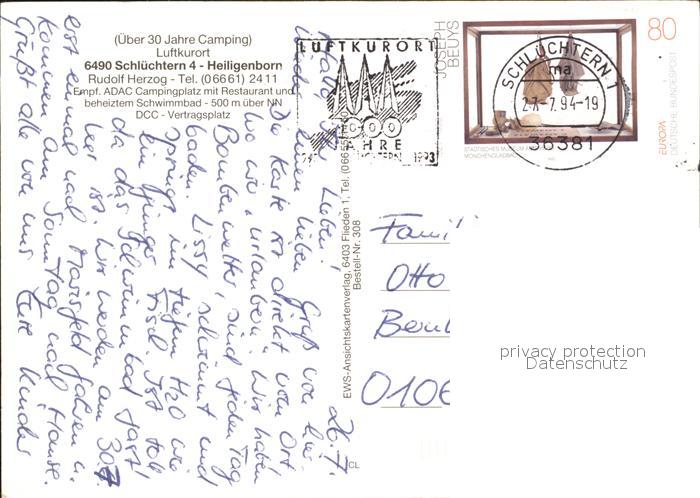 (Über 30 Jahre Camping)
Luftkurort
6490 Schlüchtern 4 - Heiligenborn
Rudolf Herzog - Tel. (06661) 2411
Empf. ADAC Campingplatz mit Restaurant und
beheiztem Schwimmbad - 500 m über NN
DCC - Vertragsplatz
26.7.
Hallo Ihr Lieben!
einen lieben Gruß von hier.
Die Karte ist direkt vom Ort,
wo wir "urlauben". Wir haben
Bombenwetter, sind jeden Tag
baden. Lissy schwimmt und
springt im tiefen H2O wie
ein junger Fisch. Ist toll
da das Schwimmbad fast
leer ist. Wir werden am 30.7
erst einmal nach fahren u.
kommen am Sonntag nach Hause.
Grüßt alle von uns Eure Kinder
EWS-Ansichtskartenverlag, 6403 Flieden 1, Tel. (06655)
Bestell-Nr. 308
CL
LUFTKURORT
1000
JAHRE
1993
SCHLÜCHTERN 1
ma
27.-7.94-19
36381
JOSEPH
BEUYS
80
EUROPA
DEUTSCHE BUNDESPOST
STÄDTISCHES MUSEUM
MÖNCHENGLADBACH
Famil
Otto
0106
privacy protection
Datenschutz